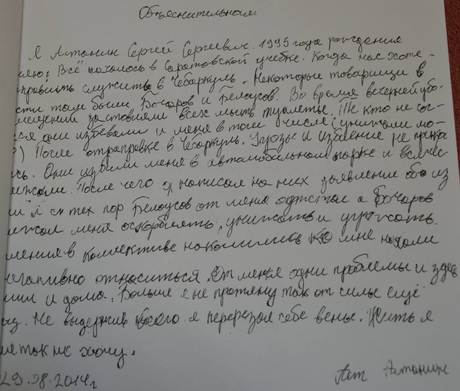 Объяснительная
Я Антонин Сергей Сергеевич. 1995 года рождения
Всё началось в Саратовской учебке. Когда нас хоте-
править служить в Чебаркуль. Некоторые товарищи в
сти там были Бочаров и Белоусов. Во время вечерней убо-
мещений заставляли всех мыть туалеты. Те кто не со-
ся они избивали и меня в том числе (унижали мо-
) После отправки в Чебаркуль. Угрозы и избиение не прекра
сь. Они избили меня в автомобильном парке и
После чего я написал на них заявление
и с тех пор Белоусов от меня отстал а Бочаров
меня оскорблять, унижать и угрожать.
в коллективе накалились ко мне начали
негативно относиться. От меня одни проблемы и здесь
и дома. Больше я не протяну так от силы ещё
Не выдержив всего я перерезал себе вены. Жить я
так не хочу.
29.08.2014г Антонин